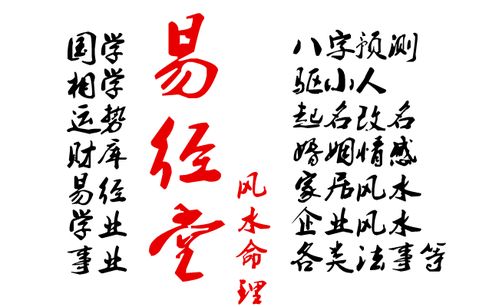 国学
相学
运势
财库
易经
学业
事业
易经堂
风水命理
八字预测
驱小人
起名改名
婚姻情感
家居风水
企业风水
各类法事等